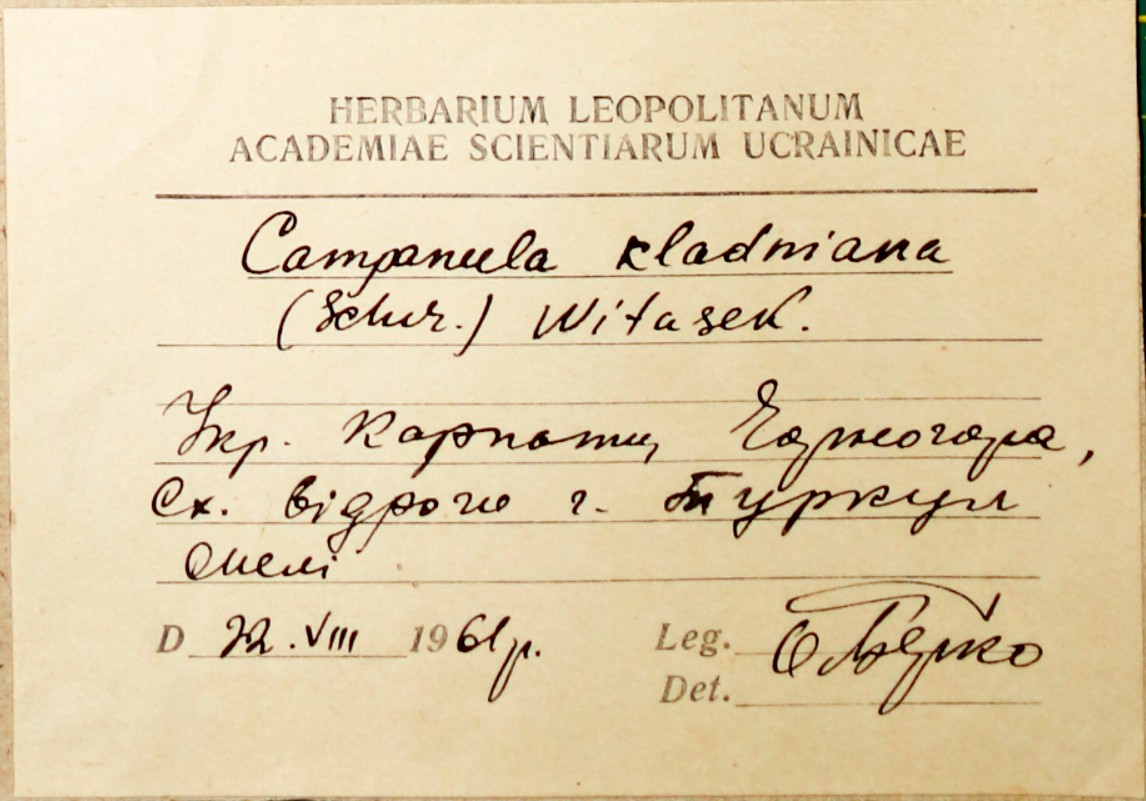 HERBARIUM LEOPOLITANUM
ACADEMIAE SCIENTIARUM UCRAINICAE
Campanula kladniana
(Schur.) Witasek.
Укр. Карпати, Чорногора,
Сх. відроги г. Туркул
скелі
D 22.VIII 1961р.
Leg.
Det.